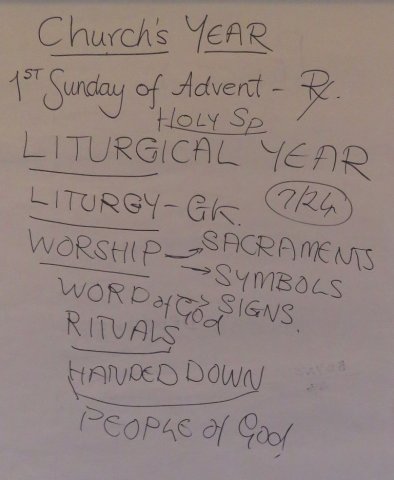 Church's YEAR
1ST Sunday of Advent -
HOLY Sp
LITURGICAL YEAR
LITURGY - GK. 7/24
WORSHIP → SACRAMENTS
→ SYMBOLS
WORD of God → SIGNS.
RITUALS
HANDED DOWN
PEOPLE of God